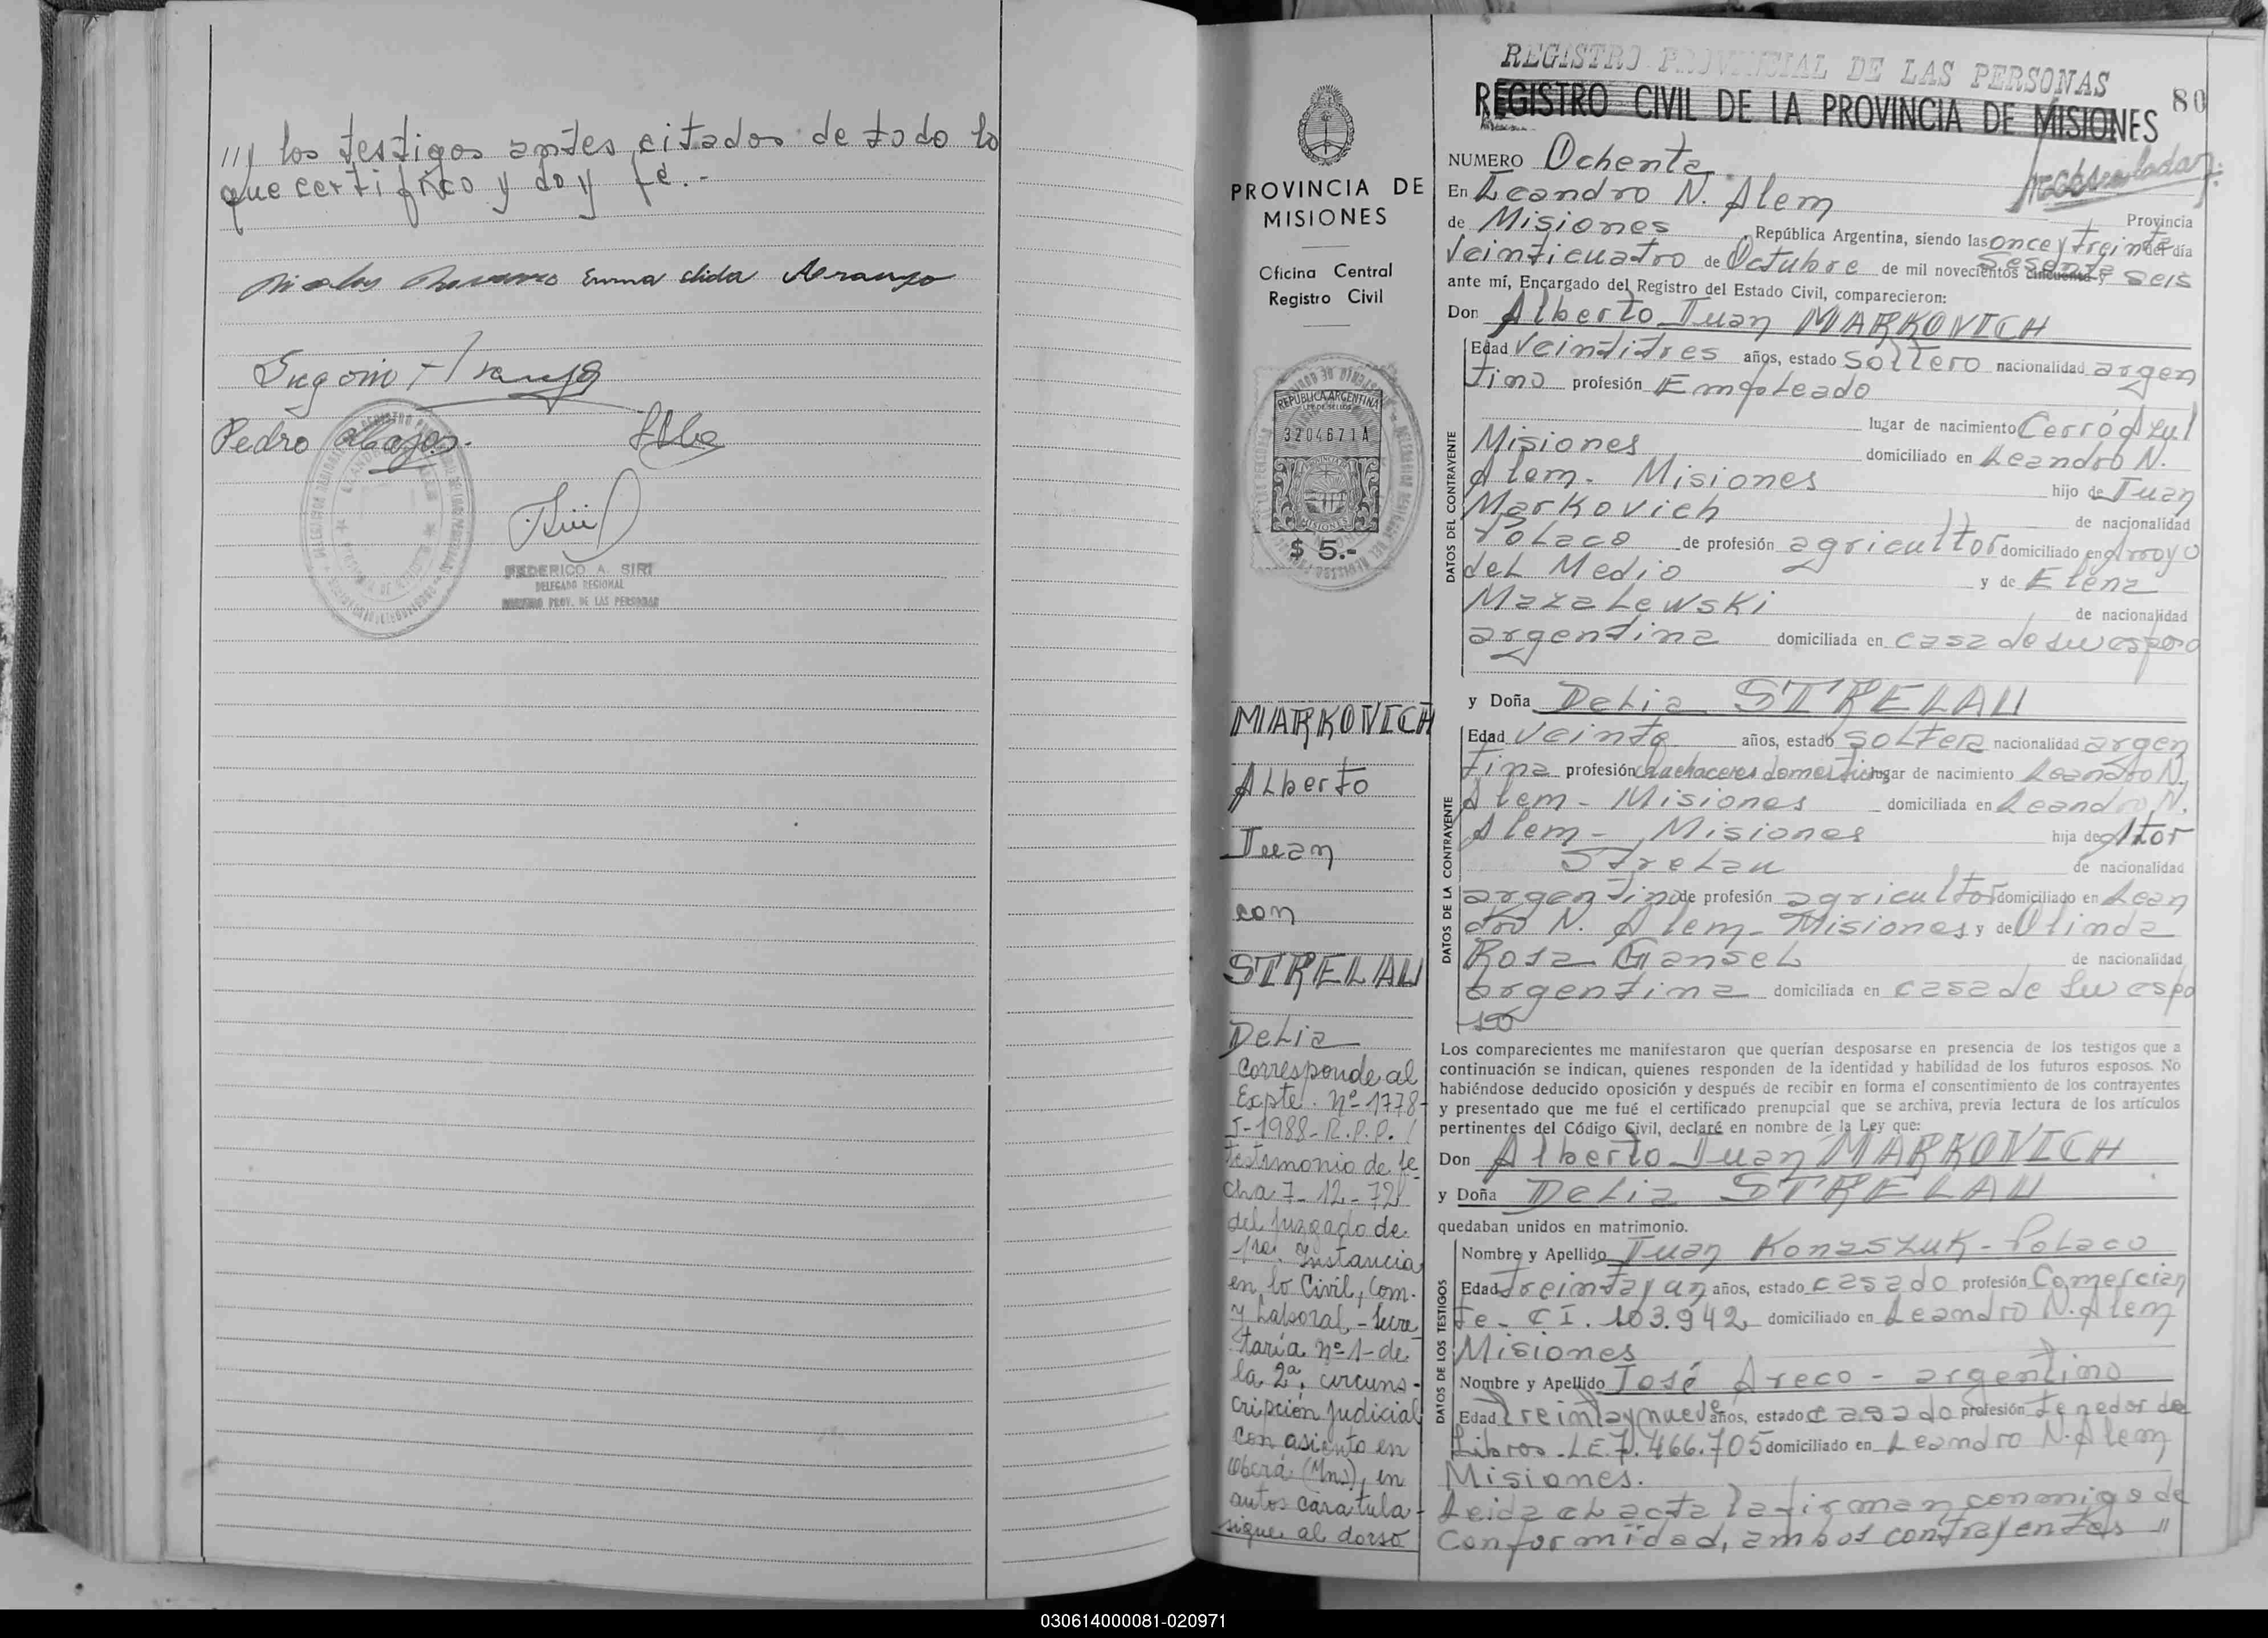 /// los testigos antes citados de todo lo
que certifico y doy fé.-
Emma elida
Pedro
FEDERICO A. SIRI
DELEGADO REGIONAL
REGISTRO PROV. DE LAS PERSONAS
PROVINCIA DE
MISIONES
Oficina Central
Registro Civil
REPUBLICA ARGENTINA
3204671A
MISIONES
$ 5.-
MARKOVICH
Alberto
Juan
con
STRELAU
Delia
Corresponde al
Expte. nº 1778-
1988- R.P.P. /
testimonio de fe
cha 7-12-72
del juzgado de
1ra. Instancia
en lo Civil, Com.
y Laboral - Secre
taría nº 1- de
la 2ª. circuns-
cripción judicial
con asiento en
Oberá (Mns), en
autos caratula-
sigue al dorso
REGISTRO PROVINCIAL DE LAS PERSONAS
REGISTRO CIVIL DE LA PROVINCIA DE MISIONES
80
NUMERO Ochenta
En Leandro N. Alem
Provincia
de Misiones, República Argentina, siendo las once y treinta del día
Veinticuatro de Octubre de mil novecientos cincuenta y sesenta seis
ante mí, Encargado del Registro del Estado Civil, comparecieron:
Don Alberto Juan MARKOVICH
DATOS DEL CONTRAYENTE
Edad Veintitres años, estado soltero nacionalidad argen
tino profesión Empleado
lugar de nacimiento Cerro Azul
Misiones domiciliado en Leandro N.
Alem - Misiones hijo de Juan
Markovich de nacionalidad
Polaco de profesión agricultor domiciliado en Arroyo
del Medio y de Elena
Mazalewski de nacionalidad
argentina domiciliada en casa de su esposo
y Doña Delia STRELAU
DATOS DE LA CONTRAYENTE
Edad Veinte años, estado soltera nacionalidad argen
tina profesión quehaceres domesticos lugar de nacimiento Leandro N.
Alem - Misiones domiciliada en Leandro N.
Alem - Misiones hija de Aitor
Strelau de nacionalidad
argentino de profesión agricultor domiciliado en Lean
dro N. Alem - Misiones y de Olinda
Rosa Gansel de nacionalidad
argentina domiciliada en casa de su espo
so
Los comparecientes me manifestaron que querían desposarse en presencia de los testigos que a
continuación se indican, quienes responden de la identidad y habilidad de los futuros esposos. No
habiéndose deducido oposición y después de recibir en forma el consentimiento de los contrayentes
y presentado que me fué el certificado prenupcial que se archiva, previa lectura de los artículos
pertinentes del Código Civil, declaré en nombre de la Ley que:
Don Alberto Juan MARKOVICH
y Doña Delia STRELAU
quedaban unidos en matrimonio.
DATOS DE LOS TESTIGOS
Nombre y Apellido Juan Konaszuk - Polaco
Edad treinta y un años, estado casado profesión Comercian
te - C I. 103.942 domiciliado en Leandro N. Alem
Misiones
Nombre y Apellido José Areco - argentino
Edad treinta y nueve años, estado casado profesión tenedor de
Libros - L E 7.466.705 domiciliado en Leandro N. Alem
Misiones.
Leida el acta la firman conmigo de
conformidad, ambos contrayentes //
030614000081-020971